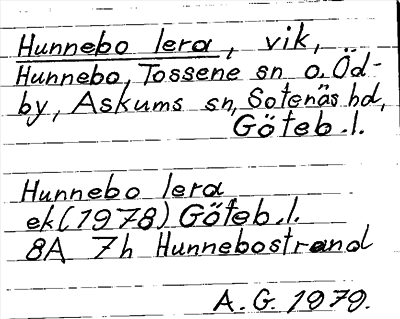 Hunnebo lera, vik,
Hunnebo, Tossene sn o. Öd-
by, Askums sn, Sotenäs hd,
Göteb. l.
Hunnebo lera
ek (1978) Göteb. l.
8A 7h Hunnebostrand
A. G. 1979.